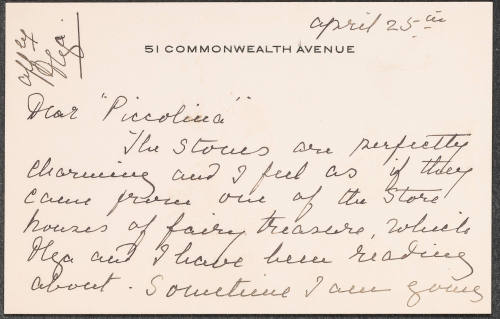 April 25th
affly
Olga
51 COMMONWEALTH AVENUE
Dear "Piccolina"
The Stones are perfectly
charming and I feel as if they
came from one of the Store
houses of fairy treasure, which
Olga and I have been reading
about. Sometime I am going